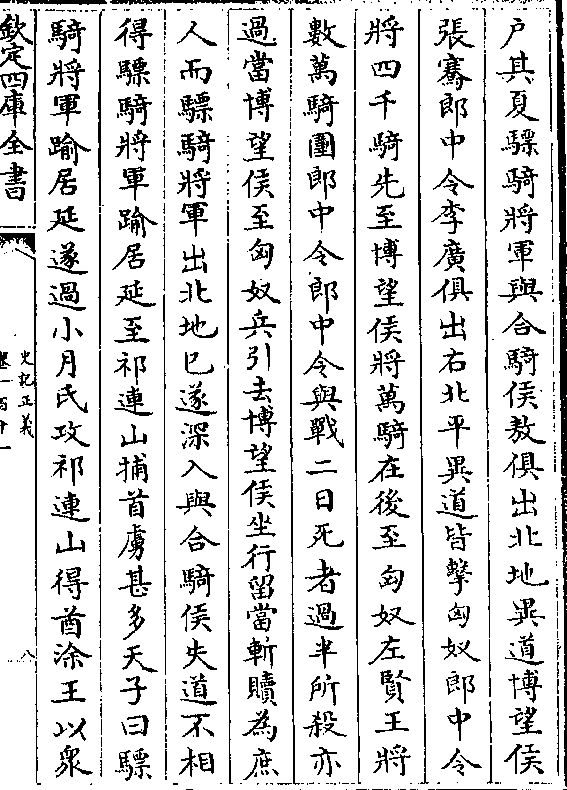 户其夏驃騎將軍與合騎侯敖俱出北地異道博望侯
張騫郎中令李廣俱出右北平異道皆擊匈奴郎中令
將四千騎先至博望侯將萬騎在後至匈奴左賢王將
數萬騎圍郎中令郎中令與戰二日死者過半所殺亦
過當博望侯至匈奴兵引去博望侯坐行留當斬贖為庶
人而驃騎將軍出北地已遂深入與合騎侯失道不相
得驃騎將軍踰居延至祁連山捕首虜甚多天子曰驃
騎將軍踰居延遂過小月氏攻祁連山得酋涂王以衆
欽定四庫全書
史記正義
卷一百十一
八